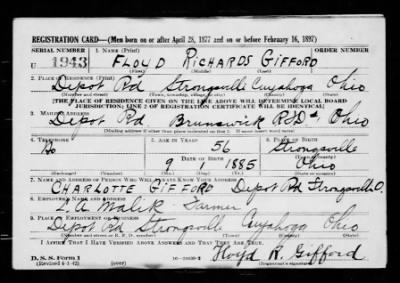 REGISTRATION CARD—(Men born on or after April 28, 1877 and on or before February 16, 1897)
SERIAL NUMBER 1. NAME (Print) ORDER NUMBER
U 1943 FLOYD RICHARDS GIFFORD
(First) (Middle) (Last)
2. PLACE OF RESIDENCE (Print)
Depot Rd Strongsville Cuyahoga Ohio
(Number and street) (Town, township, village, or city) (County) (State)
[THE PLACE OF RESIDENCE GIVEN ON THE LINE ABOVE WILL DETERMINE LOCAL BOARD
JURISDICTION; LINE 2 OF REGISTRATION CERTIFICATE WILL BE IDENTICAL]
3. MAILING ADDRESS
Depot Rd Brunswick Ohio
[Mailing address if other than place indicated on line 2. If same insert word same]
4. TELEPHONE 5. AGE IN YEARS 6. PLACE OF BIRTH
No 56 Strongsville
DATE OF BIRTH
9 1 1885 Ohio
7. NAME AND ADDRESS OF PERSON WHO WILL ALWAYS KNOW YOUR ADDRESS
CHARLOTTE GIFFORD Depot Rd Strongsville O.
8. EMPLOYER'S NAME AND ADDRESS
Malik Farmer
9. PLACE OF EMPLOYMENT OR BUSINESS
Depot Rd Strongsville Cuyahoga Ohio
(Number and street or R. F. D. number) (Town) (County) (State)
I AFFIRM THAT I HAVE VERIFIED ABOVE ANSWERS AND THAT THEY ARE TRUE.
Floyd R. Gifford
D. S. S. Form 1
(Revised 4-1-42) (over)